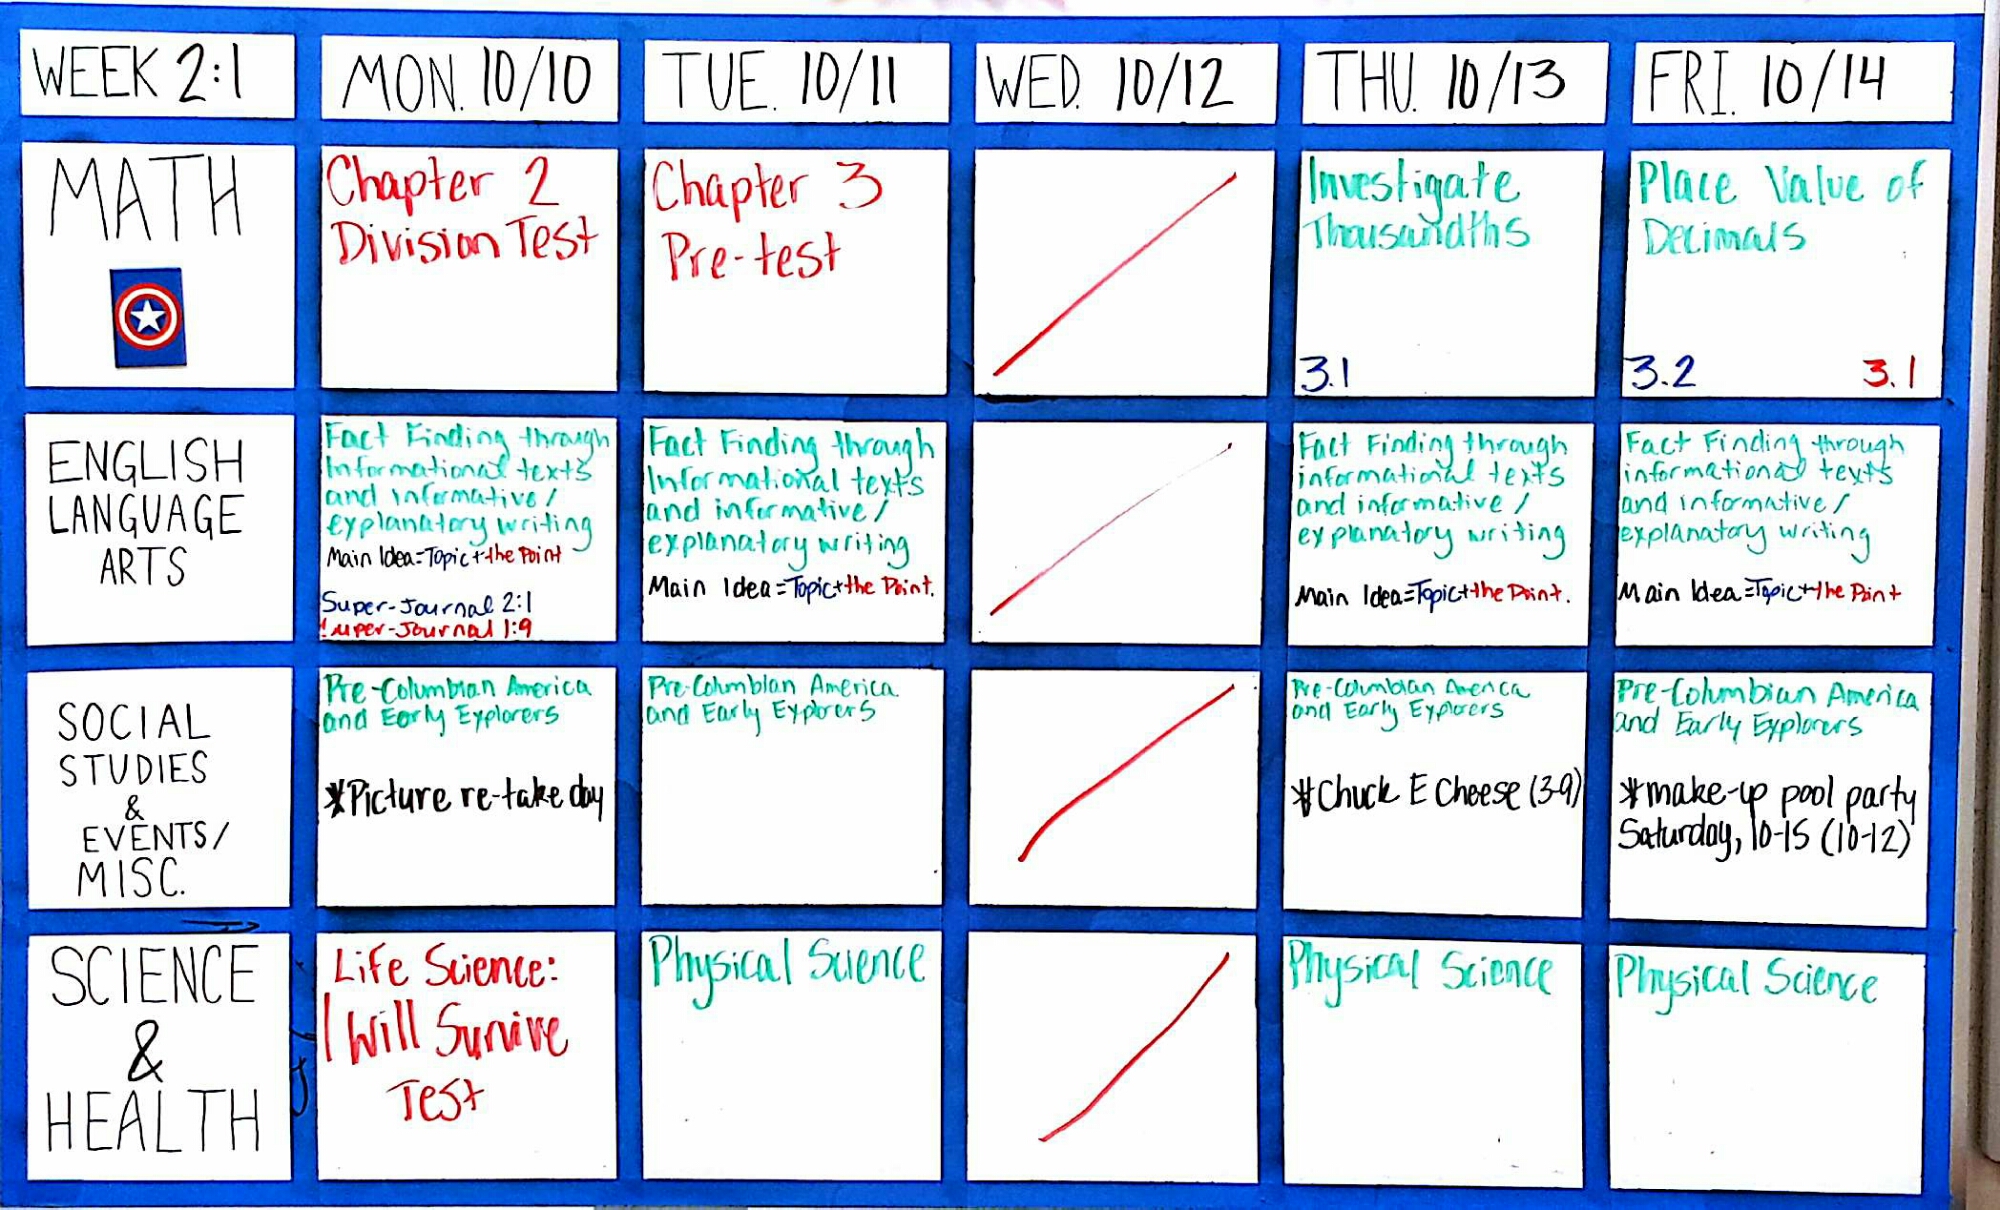 WEEK 2:1
MON. 10/10
TUE. 10/11
WED. 10/12
THU. 10/13
FRI. 10/14
MATH
Chapter 2
Division Test
Chapter 3
Pre-test
Investigate
Thousandths
3.1
Place Value of
Decimals
3.2
3.1
ENGLISH
LANGUAGE
ARTS
Fact Finding through
Informational texts
and informative/
explanatory writing
Main Idea=Topic+the Point
Super-Journal 2:1
Super-Journal 1:9
Fact Finding through
Informational texts
and informative/
explanatory writing
Main Idea=Topic+the Point.
Fact Finding through
informational texts
and informative/
explanatory writing
Main Idea=Topic+the Point.
Fact Finding through
informational texts
and informative/
explanatory writing
Main Idea=Topic+the Point
SOCIAL
STUDIES
&
EVENTS/
MISC.
Pre-Columbian America
and Early Explorers
*Picture re-take day
Pre-Columbian America
and Early Explorers
Pre-Columbian America
and Early Explorers
*Chuck E Cheese (3-9)
Pre-Columbian America
and Early Explorers
*make-up pool party
Saturday, 10-15 (10-12)
SCIENCE
&
HEALTH
Life Science:
I Will Survive
Test
Physical Science
Physical Science
Physical Science